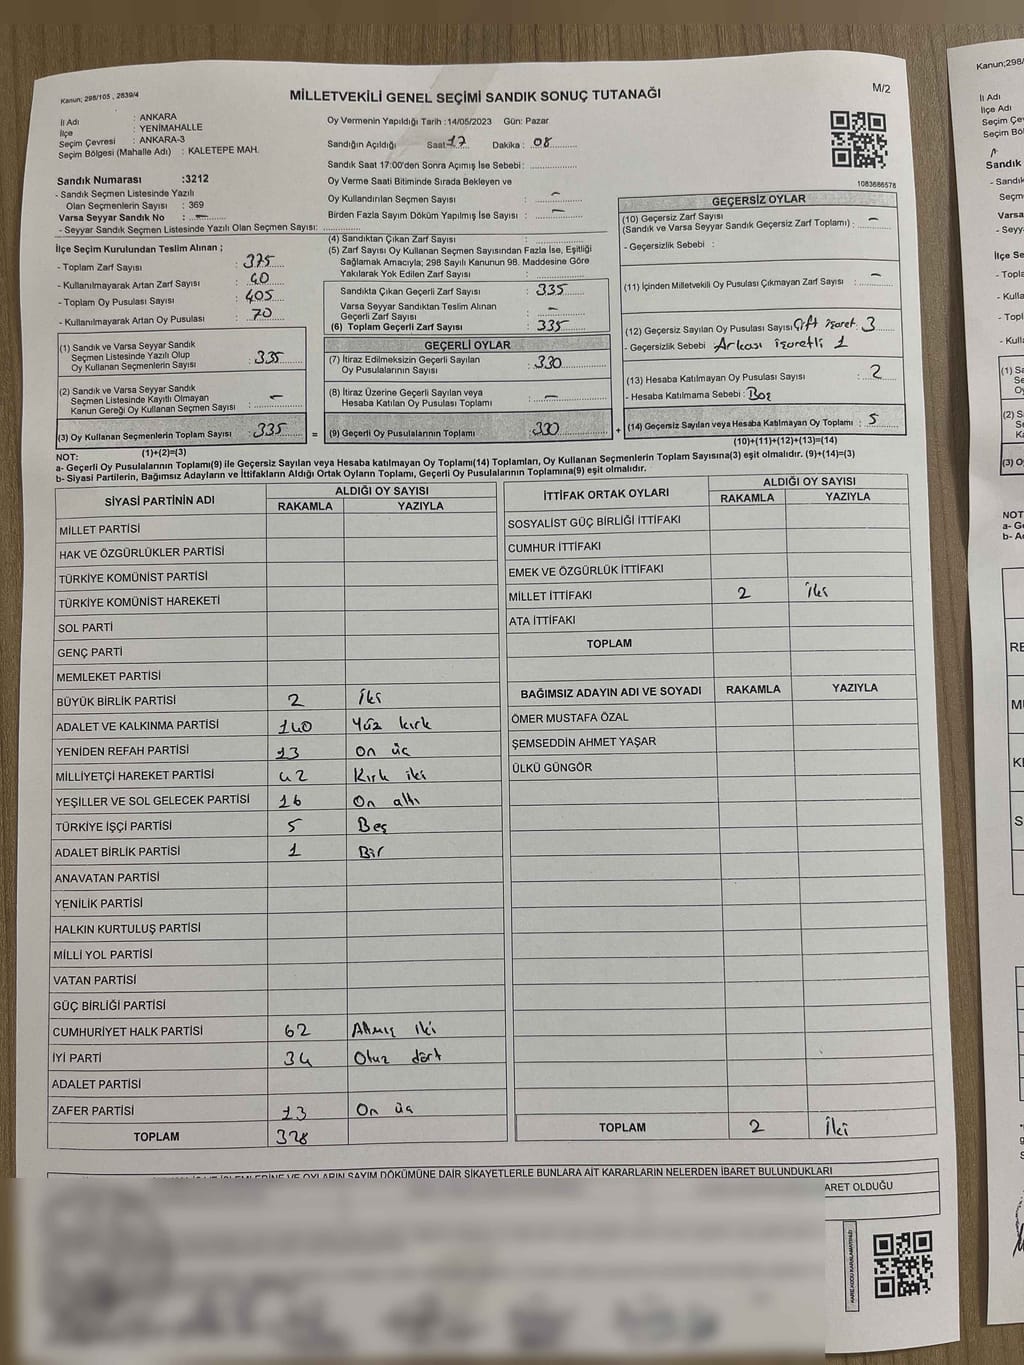 Kanun; 298/105 , 2839/4
MİLLETVEKİLİ GENEL SEÇİMİ SANDIK SONUÇ TUTANAĞI
M/2
İl Adı : ANKARA
İlçe : YENİMAHALLE
Seçim Çevresi : ANKARA-3
Seçim Bölgesi (Mahalle Adı) : KALETEPE MAH.
Sandık Numarası :3212
- Sandık Seçmen Listesinde Yazılı
Olan Seçmenlerin Sayısı : 369
Varsa Seyyar Sandık No : –
- Seyyar Sandık Seçmen Listesinde Yazılı Olan Seçmen Sayısı:
Oy Vermenin Yapıldığı Tarih :14/05/2023 Gün: Pazar
Sandığın Açıldığı Saat 17 Dakika : 08
Sandık Saat 17:00'den Sonra Açımış İse Sebebi:
Oy Verme Saati Bitiminde Sırada Bekleyen ve
Oy Kullandırılan Seçmen Sayısı : –
Birden Fazla Sayım Döküm Yapılmış İse Sayısı : –
1083686578
İlçe Seçim Kurulundan Teslim Alınan ;
- Toplam Zarf Sayısı : 375
- Kullanılmayarak Artan Zarf Sayısı : 40
- Toplam Oy Pusulası Sayısı : 405
- Kullanılmayarak Artan Oy Pusulası : 70
(1) Sandık ve Varsa Seyyar Sandık
Seçmen Listesinde Yazılı Olup
Oy Kullanan Seçmenlerin Sayısı : 335
(2) Sandık ve Varsa Seyyar Sandık
Seçmen Listesinde Kayıtlı Olmayan
Kanun Gereği Oy Kullanan Seçmen Sayısı : –
(3) Oy Kullanan Seçmenlerin Toplam Sayısı : 335
(1)+(2)=(3)
(4) Sandıktan Çıkan Zarf Sayısı :
(5) Zarf Sayısı Oy Kullanan Seçmen Sayısından Fazla İse, Eşitliği
Sağlamak Amacıyla; 298 Sayılı Kanunun 98. Maddesine Göre
Yakılarak Yok Edilen Zarf Sayısı :
Sandıkta Çıkan Geçerli Zarf Sayısı : 335
Varsa Seyyar Sandıktan Teslim Alınan
Geçerli Zarf Sayısı : –
(6) Toplam Geçerli Zarf Sayısı : 335
GEÇERLİ OYLAR
(7) İtiraz Edilmeksizin Geçerli Sayılan
Oy Pusulalarının Sayısı : 330
(8) İtiraz Üzerine Geçerli Sayılan veya
Hesaba Katılan Oy Pusulası Toplamı : –
= (9) Geçerli Oy Pusulalarının Toplamı : 330
GEÇERSİZ OYLAR
(10) Geçersiz Zarf Sayısı
(Sandık ve Varsa Seyyar Sandık Geçersiz Zarf Toplamı) : –
- Geçersizlik Sebebi :
(11) İçinden Milletvekili Oy Pusulası Çıkmayan Zarf Sayısı : –
(12) Geçersiz Sayılan Oy Pusulası Sayısı Çift işaret: 3
- Geçersizlik Sebebi Arkası işaretli 1
(13) Hesaba Katılmayan Oy Pusulası Sayısı : 2
- Hesaba Katılmama Sebebi : Boş
+ (14) Geçersiz Sayılan veya Hesaba Katılmayan Oy Toplamı : 5
(10)+(11)+(12)+(13)=(14)
NOT:
a- Geçerli Oy Pusulalarının Toplamı(9) ile Geçersiz Sayılan veya Hesaba katılmayan Oy Toplamı(14) Toplamları, Oy Kullanan Seçmenlerin Toplam Sayısına(3) eşit olmalıdır. (9)+(14)=(3)
b- Siyasi Partilerin, Bağımsız Adayların ve İttifakların Aldığı Ortak Oyların Toplamı, Geçerli Oy Pusulalarının Toplamına(9) eşit olmalıdır.
SİYASİ PARTİNİN ADI ALDIĞI OY SAYISI
RAKAMLA YAZIYLA
MİLLET PARTİSİ
HAK VE ÖZGÜRLÜKLER PARTİSİ
TÜRKİYE KOMÜNİST PARTİSİ
TÜRKİYE KOMÜNİST HAREKETİ
SOL PARTİ
GENÇ PARTİ
MEMLEKET PARTİSİ
BÜYÜK BİRLİK PARTİSİ 2 İki
ADALET VE KALKINMA PARTİSİ 140 Yüz kırk
YENİDEN REFAH PARTİSİ 13 On üç
MİLLİYETÇİ HAREKET PARTİSİ 42 Kırk iki
YEŞİLLER VE SOL GELECEK PARTİSİ 16 On altı
TÜRKİYE İŞÇİ PARTİSİ 5 Beş
ADALET BİRLİK PARTİSİ 1 Bir
ANAVATAN PARTİSİ
YENİLİK PARTİSİ
HALKIN KURTULUŞ PARTİSİ
MİLLİ YOL PARTİSİ
VATAN PARTİSİ
GÜÇ BİRLİĞİ PARTİSİ
CUMHURİYET HALK PARTİSİ 62 Altmış iki
İYİ PARTİ 34 Otuz dört
ADALET PARTİSİ
ZAFER PARTİSİ 13 On üç
TOPLAM 328
İTTİFAK ORTAK OYLARI ALDIĞI OY SAYISI
RAKAMLA YAZIYLA
SOSYALİST GÜÇ BİRLİĞİ İTTİFAKI
CUMHUR İTTİFAKI
EMEK VE ÖZGÜRLÜK İTTİFAKI
MİLLET İTTİFAKI 2 İki
ATA İTTİFAKI
TOPLAM
BAĞIMSIZ ADAYIN ADI VE SOYADI RAKAMLA YAZIYLA
ÖMER MUSTAFA ÖZAL
ŞEMSEDDİN AHMET YAŞAR
ÜLKÜ GÜNGÖR
TOPLAM 2 İki
OYLARIN SAYIM DÖKÜMÜNE DAİR ŞİKAYETLERLE BUNLARA AİT KARARLARIN NELERDEN İBARET BULUNDUKLARI
ARET OLDUĞU
Kanun;298/
İl Adı
İlçe
Seçim Çev
Seçim Böl
Sandık
- Sandık
Seçm
Varsa
- Seyy
İlçe Se
- Topla
- Kulla
- Topl
- Kull
(1) Sa
Se
O
(2) S
(3) O
NOT
a- Ge
b-